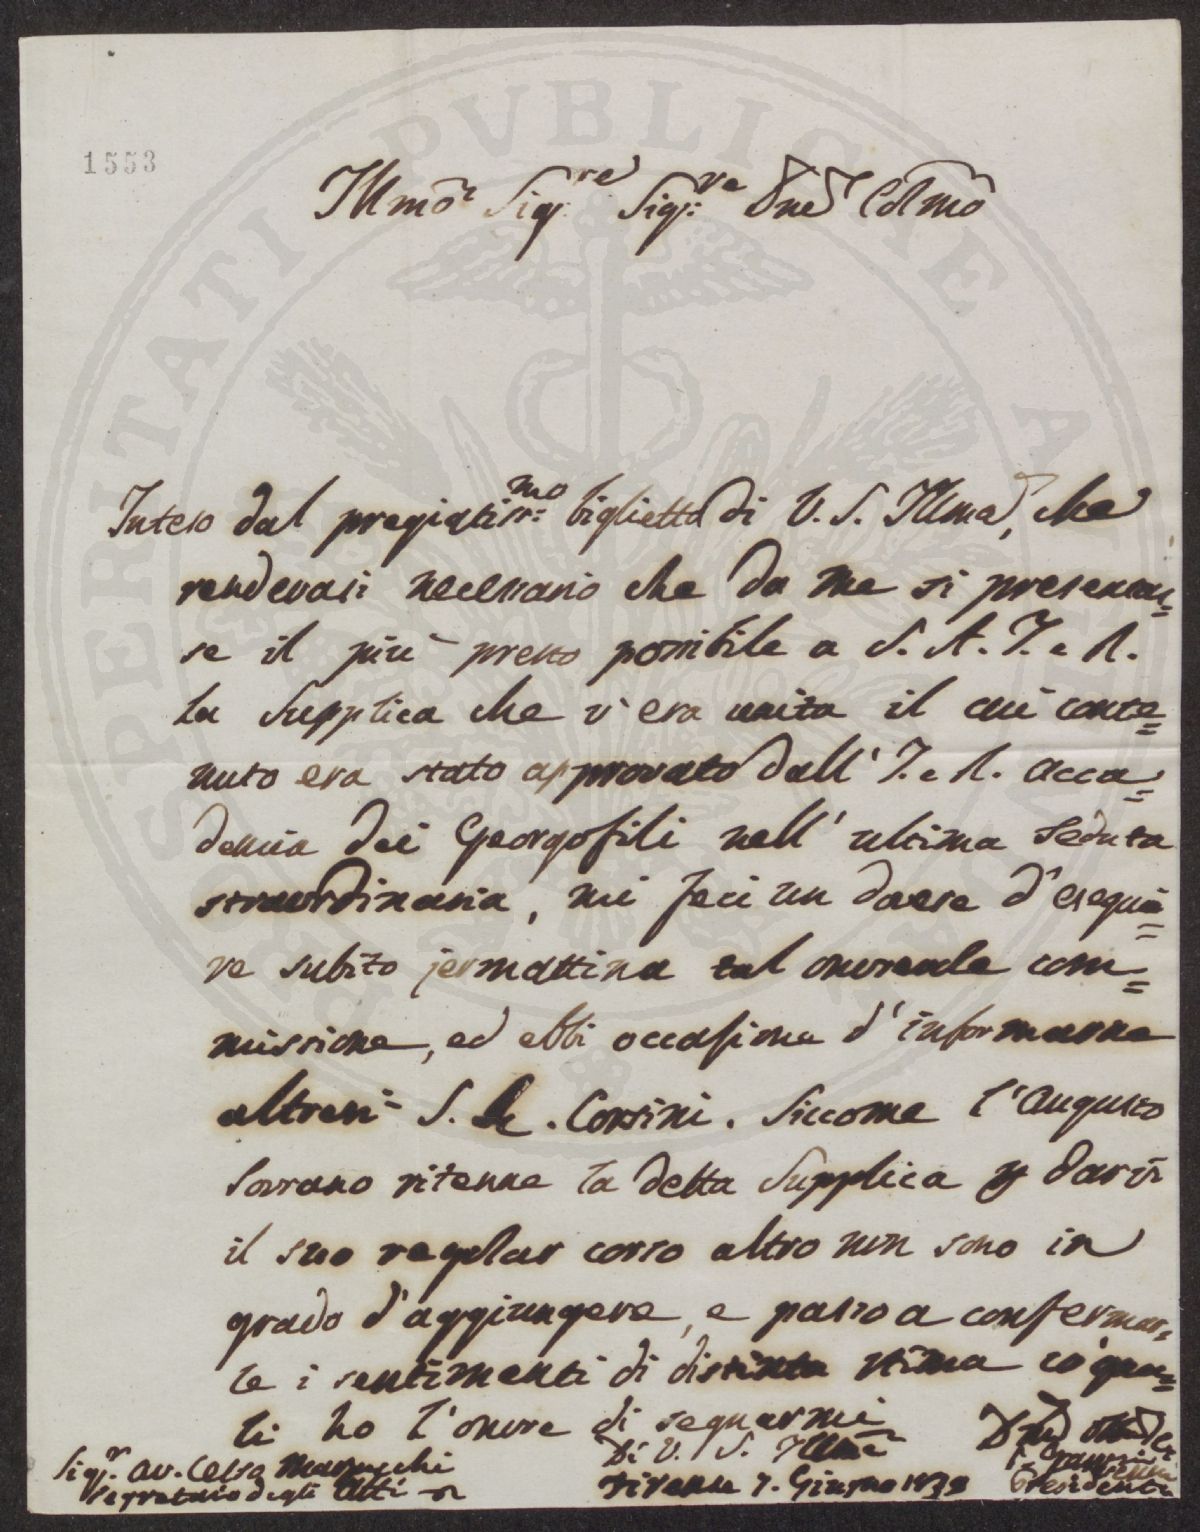 PROSPERITATI PUBLICAE AUGENDAE
1553
Illmo Sigre Sigre Pne Colmo
Inteso dal pregiatissmo biglietto di V. S. Illma, che
rendevasi necessario che da me si presentas=
se il più presto possibile a S. A. I. e R.
la Supplica che v'era unita il cui conte=
nuto era stato approvato dall' I. e R. Acca=
demia dei Georgofili nell' ultima Seduta
straordinaria, mi feci un dovere d'esegui=
re subito jermattina tal onorevole com=
missione, ed ebbi occasione d'informarne
altresì S. E. Corsini. Siccome l'Augusto
Sovrano ritenne la detta Supplica p darvi
il suo regolar corso altro non sono in
grado d'aggiungere, e passo a confermar=
le i sentimenti di distinta stima co' qua=
li ho l'onore di segnarmi
Di V. S. Illma
Sigr. Av. Celso Marzucchi
Segretario degli Atti
Firenze 7. Giugno 1832
Presidente